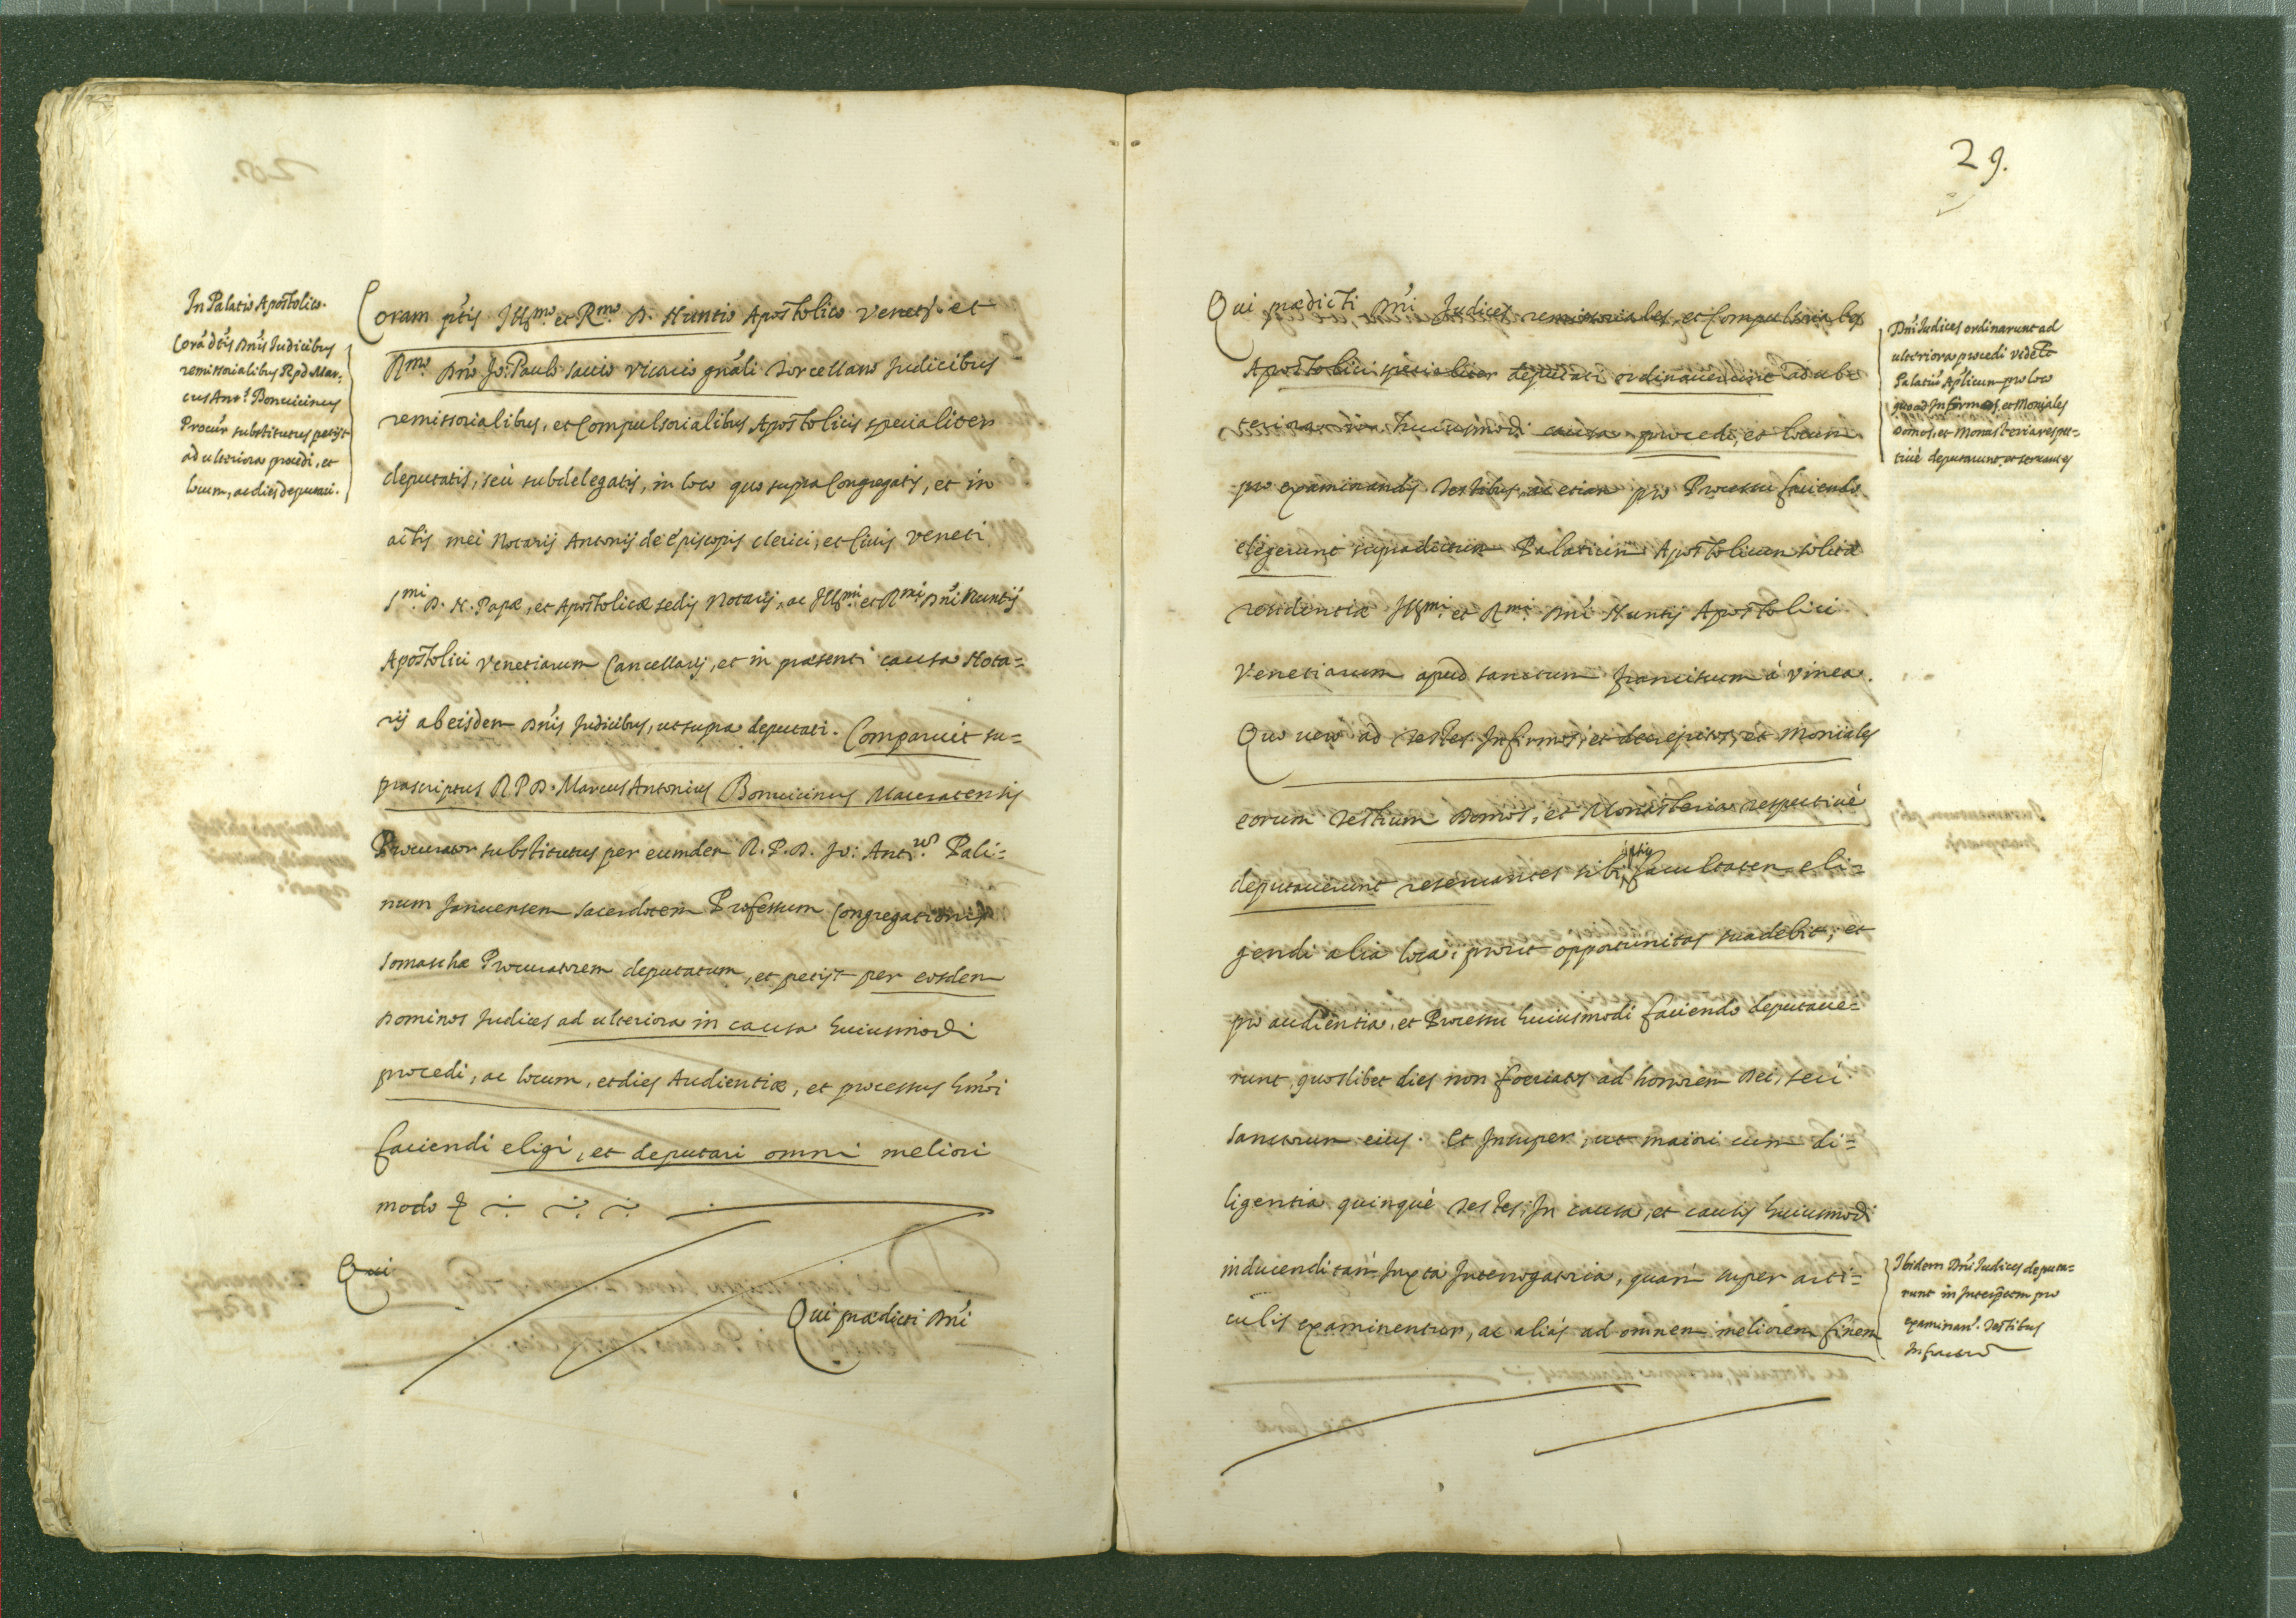 In Palatio Apostolico.
Corã dtis Dnis Judicibus
remissorialibus R.p.d. Mar=
cus Ant.s Bonuicinus
Procur substitutus petijt
ad ulteriora procedi, et
locum, ac dies deputari.
Coram ptis Illmo. et Rmo. D. Nuntio Apostolico Venetijs et
Rmo. Dno Jo: Paulo Sauio Vicario gnali Torcellano Judicibus
remissorialibus, et Compulsorialibus Apostolicis specialiter
deputatis, seù subdelegatis, in loco quo supra Congregatis, et in
actis mei Notarij Antonij de Episcopis clerici, et Ciuis Veneti
Smi. D. N. Papæ, et Apostolicæ sedis Notarij, ac Illmi. et Rmi. Dni Nuntij
Apostolici Venetiarum Cancellarij, et in præsenti causa Nota=
rij ab eisdem Dnis Judicibus, ut supra deputati. Comparuit su=
prascriptus R.P.D. Marcus Antonius Bonuicinus Maceratensis
Procurator substitutus per eumdem R.P.D. Jo: Ant.um Pali=
num Januensem sacerdotem Professum Congregationis
Somaschæ Procuratorem deputatum, et petijt per eosdem
Dominos Judices ad ulteriora in causa huiusmodi
procedi, ac locum, et dies Audientiæ, et processus hmoi
faciendi eligi, et deputari omni meliori
modo
Qui
Qui prædicti Dni
29.
Qui prædicti Dni Judices remissoriales, et Compulsoriales
Apostolici specialiter deputati ordinauerunt ad ul=
teriora in huiusmodi causa procedi, et locum
pro examinandis Testibus, ac etiam pro Processu faciendo
elegerunt supradictum Palatium Apostolicum solitæ
residentiæ Illmi. et Rmi. Dni Nuntij Apostolici
Venetiarum apud sanctum franciscum à Vinea.
Quo uero ad Testes Infirmos, et decrepitos, et Moniales
eorum Testium Domos, et Monasteria respectiuè
deputauerunt reseruantes sibi ipsis facultatem eli=
gendi alia loca, prout opportunitas suadebit, et
pro audientia, et Processu huiusmodi faciendo deputaue=
runt quoslibet dies non foeriatos ad honorem Dei, seu
Sanctorum eius. Et Insuper, ut maiori cum di=
ligentia quinquè Testes, In causa, et causis huiusmodi
inducendi tam Juxta Interrogatoria, quam super arti=
culis examinentur, ac aliàs ad omnem meliorem finem
Dni Judices ordinarunt ad
ulteriora procedi videlt
Palatiũ Aplicum pro loco
quoad Infirmos, et Moniales
Domos, et Monasteria respec=
tiuè deputarunt
Ibidem Dni Judices deputa=
runt in Interpretem pro
examinan. Testibus